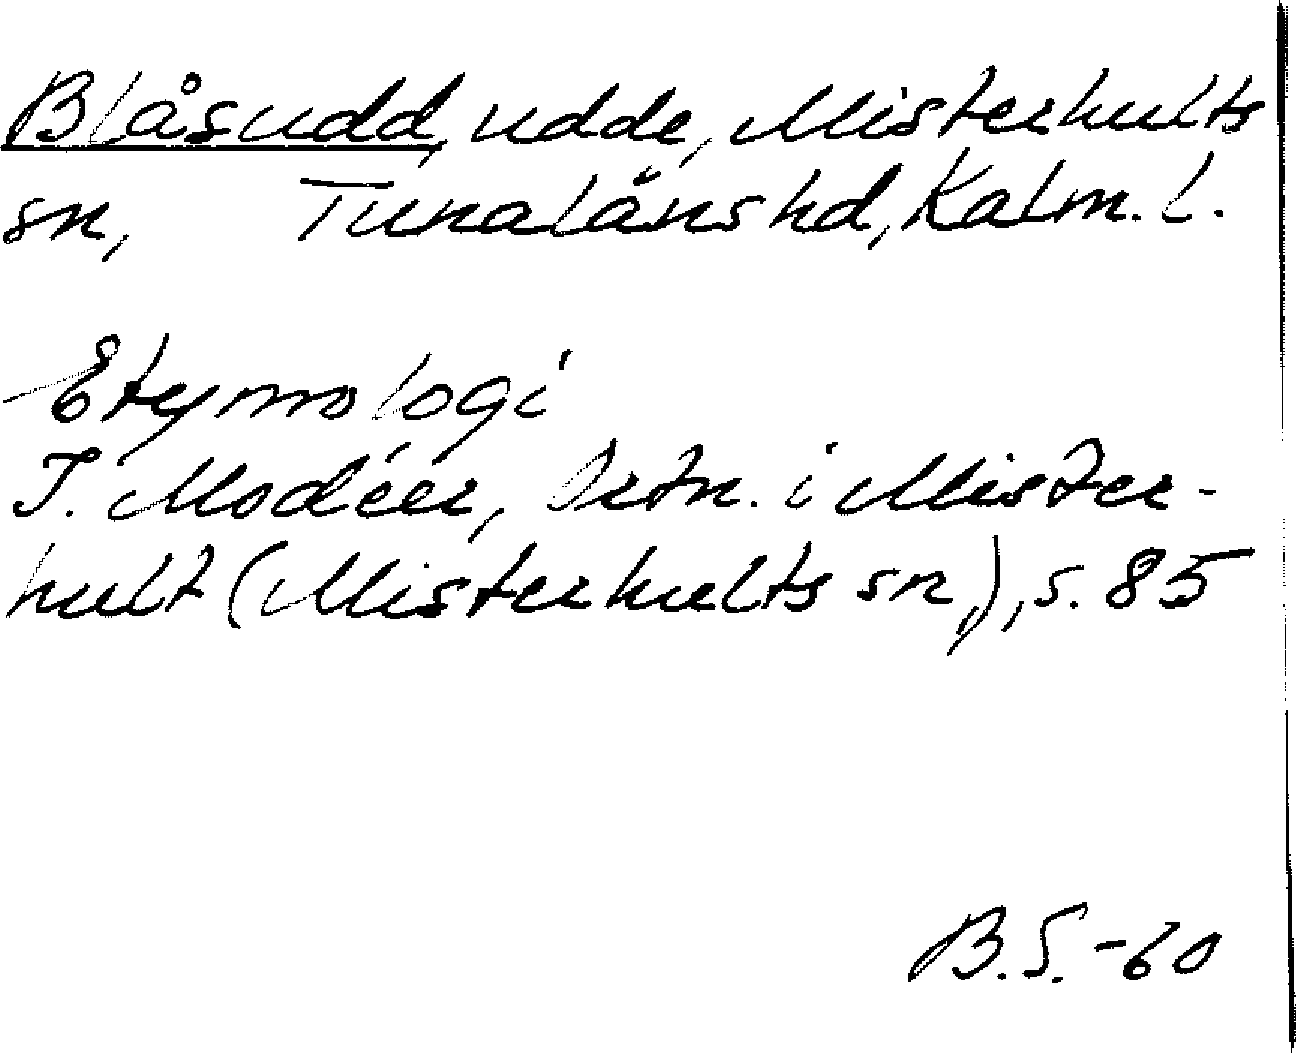 Blåsudd, udde, Misterhults
sn, Tunalåns hd, Kalm. l.
Etymologi
I. Modéer, Ortn. i Mister-
hult (Misterhults sn,), s. 85
B.S.-60